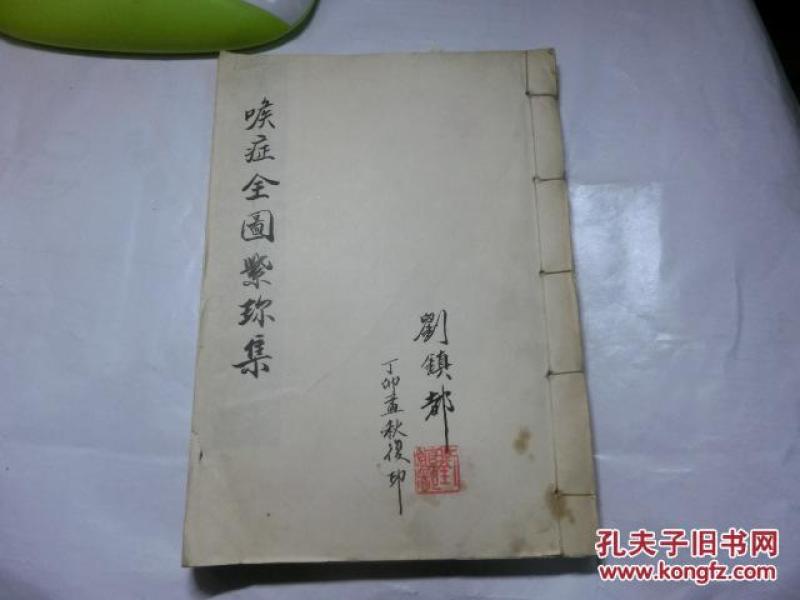 喉症全圖紫珍集
劉鎮都
丁卯孟秋複印
孔夫子旧书网
www.kongfz.com